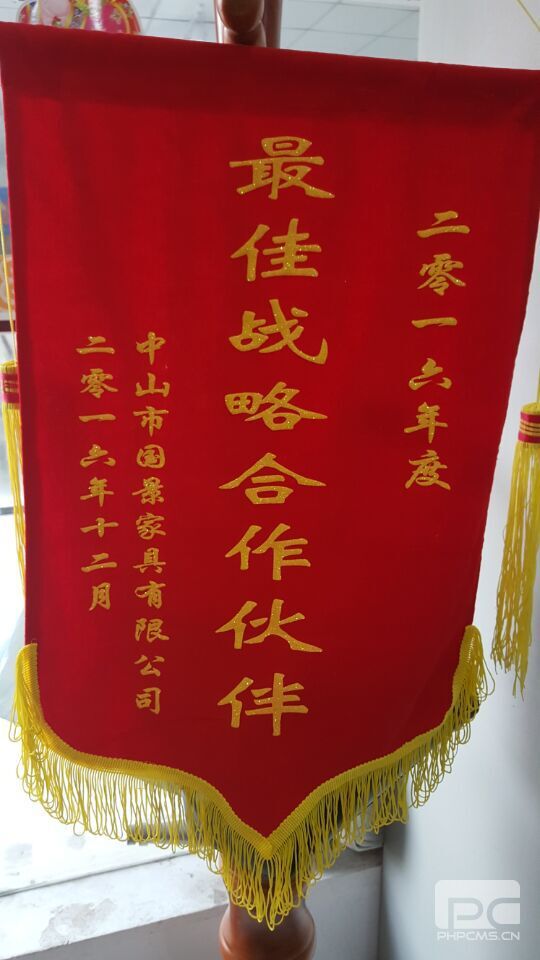 二零一六年度
最佳战略合作伙伴
中山市国景家具有限公司
二零一六年十二月
PC
PHPCMS.CN